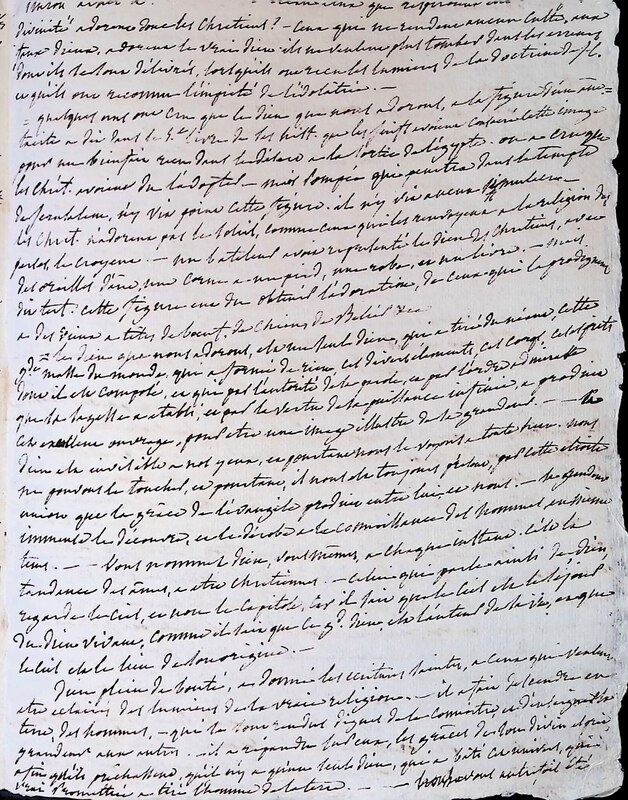 divinité adorent donc les Chretiens? - Ceux qui ne rendent aucun Culte, aux
faux dieux, adorent le vrai dieu ils ne veulent plus tomber dans les erreurs
dont ils se sont délivrés, lorsqu'ils ont recu les lumieres de la doctrine de J.C.
et qu'ils ont reconnu l'impieté de l'idolatrie. -
quelques uns ont Cru que le dieu que nous adorons, a la figure d'un âne
tacite a dit dans le 5e livre de ses hist. que les juifs avoient Consacré Cette image
pour un bienfait recu dans le désert a la sortie de l'égypte. on a Cru que
les Chrét. avoient du l'adopter - mais Pompée qui penétra dans le temple
de Jerusalem, n'y vit point Cette figure. il n'y vit aucun simulacre -
les Chret. n'adorent pas le Soleil, comme Ceux qui les renvoyent a la religion des
perses, le Croyent. - un bateleur avoit representé le dieu des Chretiens, avec
des oreilles d'âne, une Corne a un pied, une robe, et un livre. - mais
dit tert. Cette figure eut du obtenir l'adoration, de Ceux qui la prodiguent
a des dieux a têtes de boeuf, de Chiens, de Belier &ca
le dieu que nous adorons, est un seul dieu, qui a tiré du néant, Cette
gde masse du monde, qui a formé de rien, Ces divers éléments, Ces Corps, Ces esprits
dont il est Composé, et que par l'autorité de sa parole, et par l'ordre admirable
que sa sagesse a établi, et par la vertu de sa puissance infinie, a produit
Cet excellent ouvrage, pour etre une image illustre de sa grandeur. - - Ce
dieu est invisible a nos yeux, et pourtant nous le voyons a toute heure. nous
ne pouvons le toucher, et pourtant, il nous est toujours présent, par Cette étroite
union que la grâce de l'évangile produit entre lui, et nous. - sa grandeur
immense le découvre, et le dérobe a la connoissance des hommes, en meme
tems. - - Vous nommez dieu, vous mêmes, a Chaque instant. C'est la
tendance des âmes, a etre chretiennes. - Celui qui parle ainsi de dieu
regarde le Ciel, et non le Capitole, Car il sait que le Ciel est le séjour
du Dieu vivant, Comme il sait que Ce gd. dieu, est l'auteur de sa vie, et que
le Ciel est le lieu de son origine. -
Dieu plein de bonté, a donné les écritures saintes, a Ceux qui veulent
etre éclairés des lumieres de la vraie religion. - il a fait descendre en
terre, des hommes, - qui se sont rendus dignes de le connoitre, et d'enseigner sa
grandeur aux autres. il a répandu sur eux, les graces de son divin esprit
afin qu'ils prêchassent, qu'il n'y a qu'un seul dieu, qui a bâti Cet univers, qui
vrai Promethée a tiré l'homme de la terre. - - nous avons autrefois été